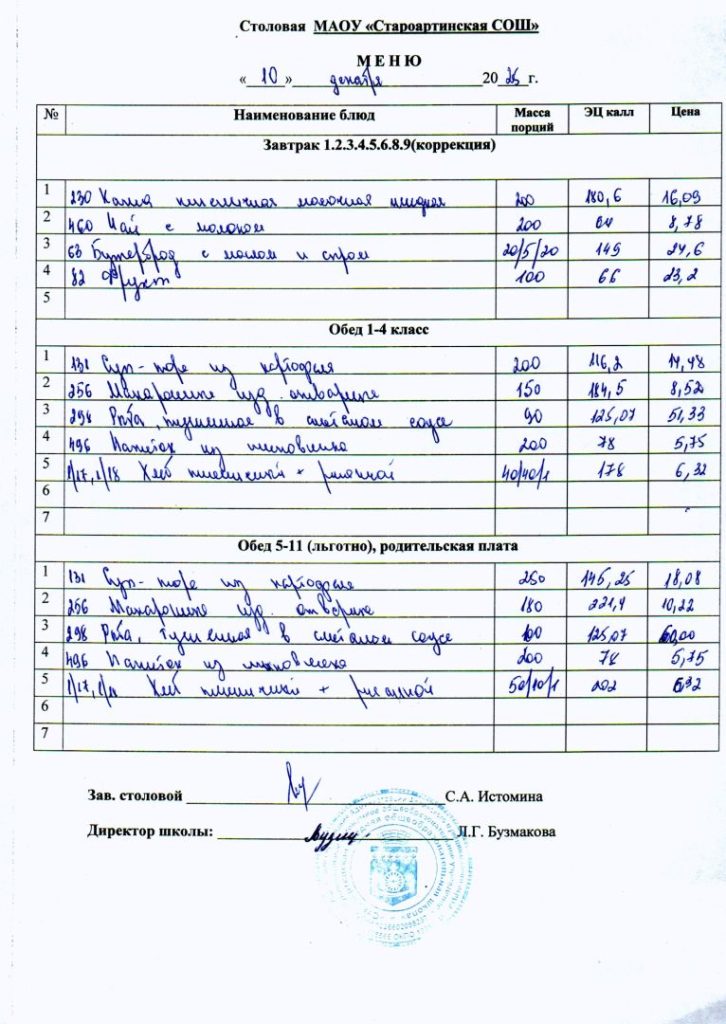 Столовая МАОУ «Староартинская СОШ»
МЕНЮ
« 10 » декабря 2025 г.
№ Наименование блюд Масса порций ЭЦ калл Цена
Завтрак 1.2.3.4.5.6.8.9(коррекция)
1 230 Каша пшеничная молочная жидкая 200 180,6 16,09
2 460 Чай с молоком 200 64 8,78
3 63 Бутерброд с маслом и сыром 20/5/20 149 24,6
4 82 Фрукт 100 66 23,2
5
Обед 1-4 класс
1 131 Суп-пюре из картофеля 200 116,2 14,48
2 256 Макаронные изд. отварные 150 184,5 8,52
3 298 Рыба, тушенное в сметаном соусе 90 125,07 51,33
4 496 Напиток из шиповника 200 78 5,75
5 1/17,1/18 Хлеб пшеничный + ржаной 40/40/1 178 6,32
6
7
Обед 5-11 (льготно), родительская плата
1 131 Суп-пюре из картофеля 250 145,25 18,08
2 256 Макаронные изд. отварные 180 221,4 10,22
3 298 Рыба, тушенная в сметаном соусе 100 125,07 60,00
4 496 Напиток из шиповника 200 78 5,75
5 Хлеб пшеничный + ржаной 202 6,32
6
7
Зав. столовой С.А. Истомина
Директор школы: Л.Г. Бузмакова